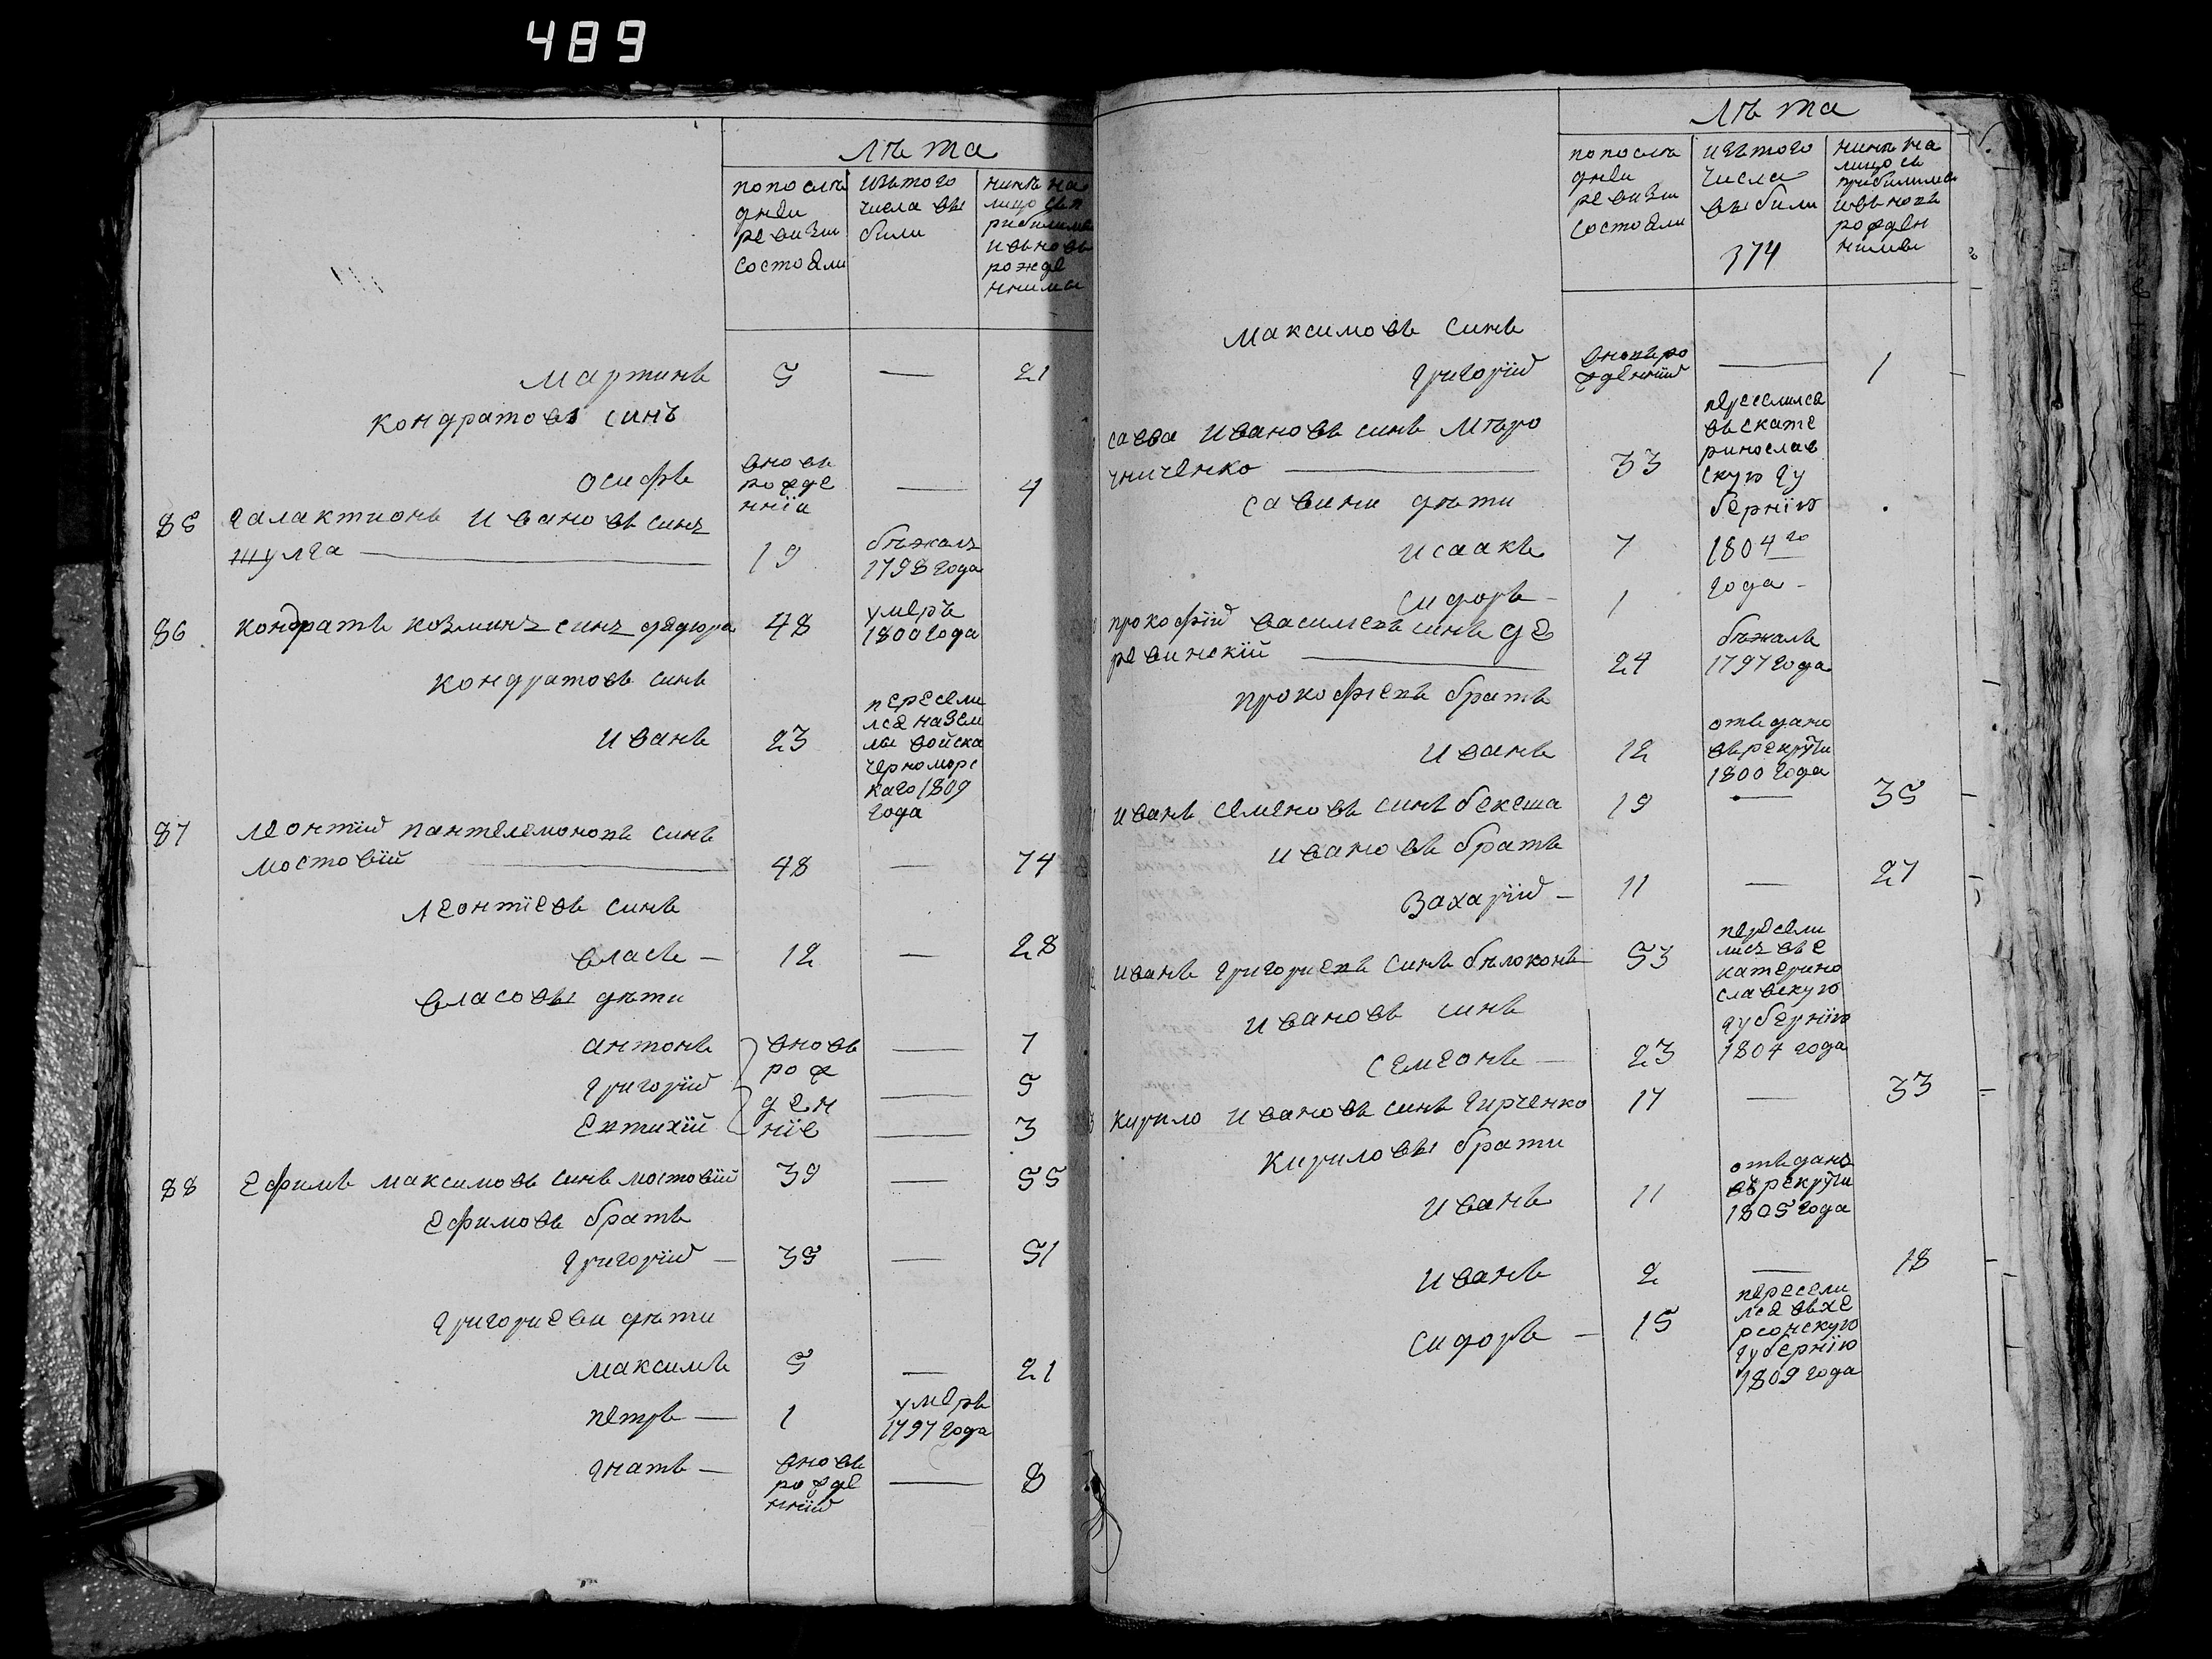 489
Лѣта
попослѣ
дней
ревизи
состояли
изътого
числа вы
были
нинѣ на
лицо съп
рибилими
ивъновь
рожде
нними
Мартинъ 5 — 21
Кондратовъ синъ
Осифъ
вновь
рожде
нній
— 4
85 Галактионъ Ивановъ синъ
Шулга — 19
бѣжалъ
1798 года
86 Кондратъ Козминъ синъ Дядюра 48
умеръ
1800 года
Кондратовъ синъ
Иванъ 23
пересели
лся назем
лы войска
черноморс
каго 1809
года
87 Леонтий Пантелемоновъ синъ
Мостовій — 48 — 74
Леонтіевъ синъ
Власъ — 12 — 28
Власовы дѣти
Антонъ — 7
Григорій — 5
Евтихій — 3
вновь
рож
ден
ніе
88 Ефимъ Максимовъ синъ Мостовій 39 — 55
Ефимовъ братъ
Григорій — 35 — 51
Григориеви дѣти
Максимъ 5 — 21
Петръ — 1
умеръ
1797 года
Гнатъ —
вновь
рожде
нній
— 8
Лѣта
попослѣ
дней
ревизи
состояли
изътого
числа
выбили
374
нинѣ на
лицо съ
прибилими
ивъновъ
рожден
ними
Максимовъ синъ
Григорій
вновъро
жденній
— 1
Савва Ивановъ синъ Мѣро
шниченко — 33
Савини дѣти
Исаакъ 7
Сидоръ — 1
переселился
въекате
ринослав
скую гу
бернію
1804 го
года —
Прокофій Василевъ синъ Де
ревинскій — 24
бѣжалъ
1797 года
Прокофиевъ братъ
Иванъ 12
отъдано
върекруты
1800 года
Иванъ Семеновъ синъ Бекеша 19 — 35
Ивановъ братъ
Захарій — 11 — 27
Иванъ Григориевъ синъ Бѣлоконъ 53
Ивановъ синъ
Семионъ — 23
пересели
лись въе
катерино
славскую
губернію
1804 года
Кирило Ивановъ синъ Гирченко 17 — 33
Кириловы брати
Иванъ 11
отъданъ
върекруты
1805 года
Иванъ 2 — 18
Сидоръ — 15
пересели
лся въхе
рсонскую
губернію
1809 года